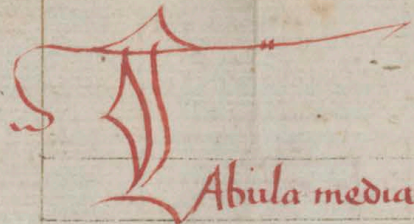 TAbula media